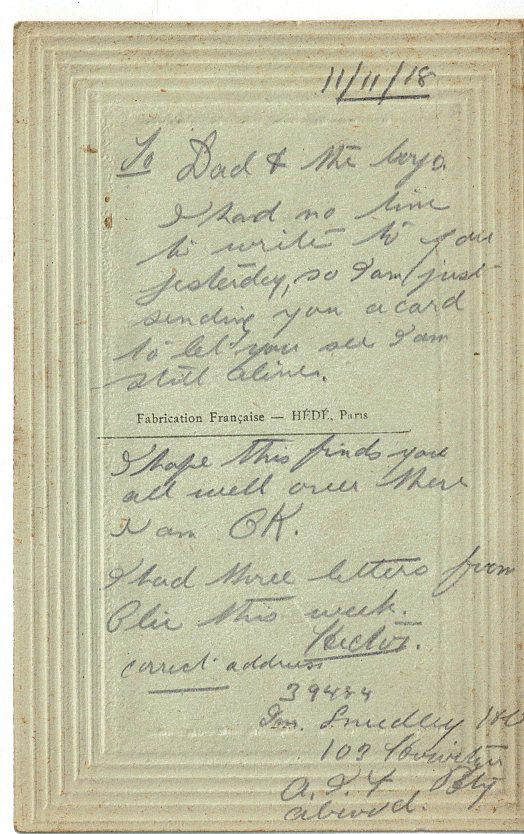 11/11/18
To Dad & the boys
I had no time
to write to you
yesterday, so I am just
sending you a card
to let you see I am
still alive.
Fabrication Française — HÉDÉ, Paris
I hope this finds you
all well over there
I am OK.
I had three letters from
this week.
Hector.
correct address
394
Smedley
103 Howitzer
A.I.F Bty
abroad.